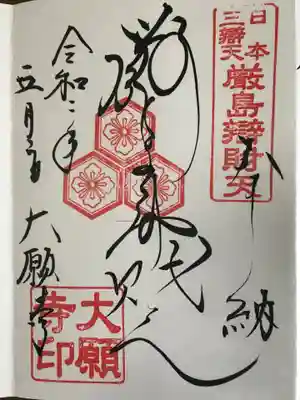 奉納
日本
三辯天
厳島辯財天
厳島弁財天
令和二年
五月三日
大願寺
大願
寺印